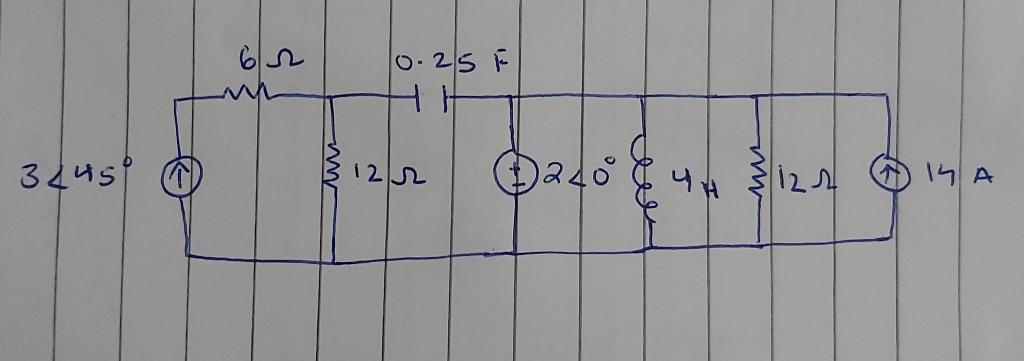 6 Ω 0.25 F
3∠45° 12 Ω 2∠0° 4H 12Ω 14 A